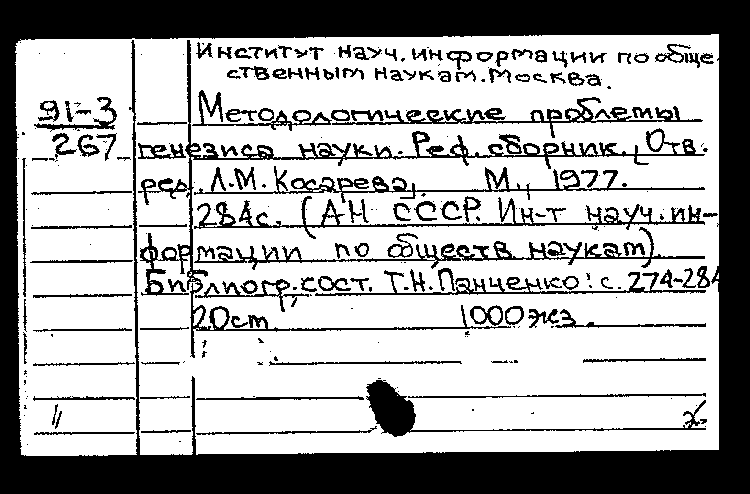 Институт науч. информации по обще-
ственным наукам. Москва.
91-3
267
Методологические проблемы
генезиса науки. Реф. сборник. [Отв.
ред. Л.М. Косарева]. М., 1977.
284с. (АН СССР. Ин-т науч. ин-
формации по обществ наукам)
Библиогр. сост. Т.Н. Панченко: с. 274-284
20см 1000 экз.